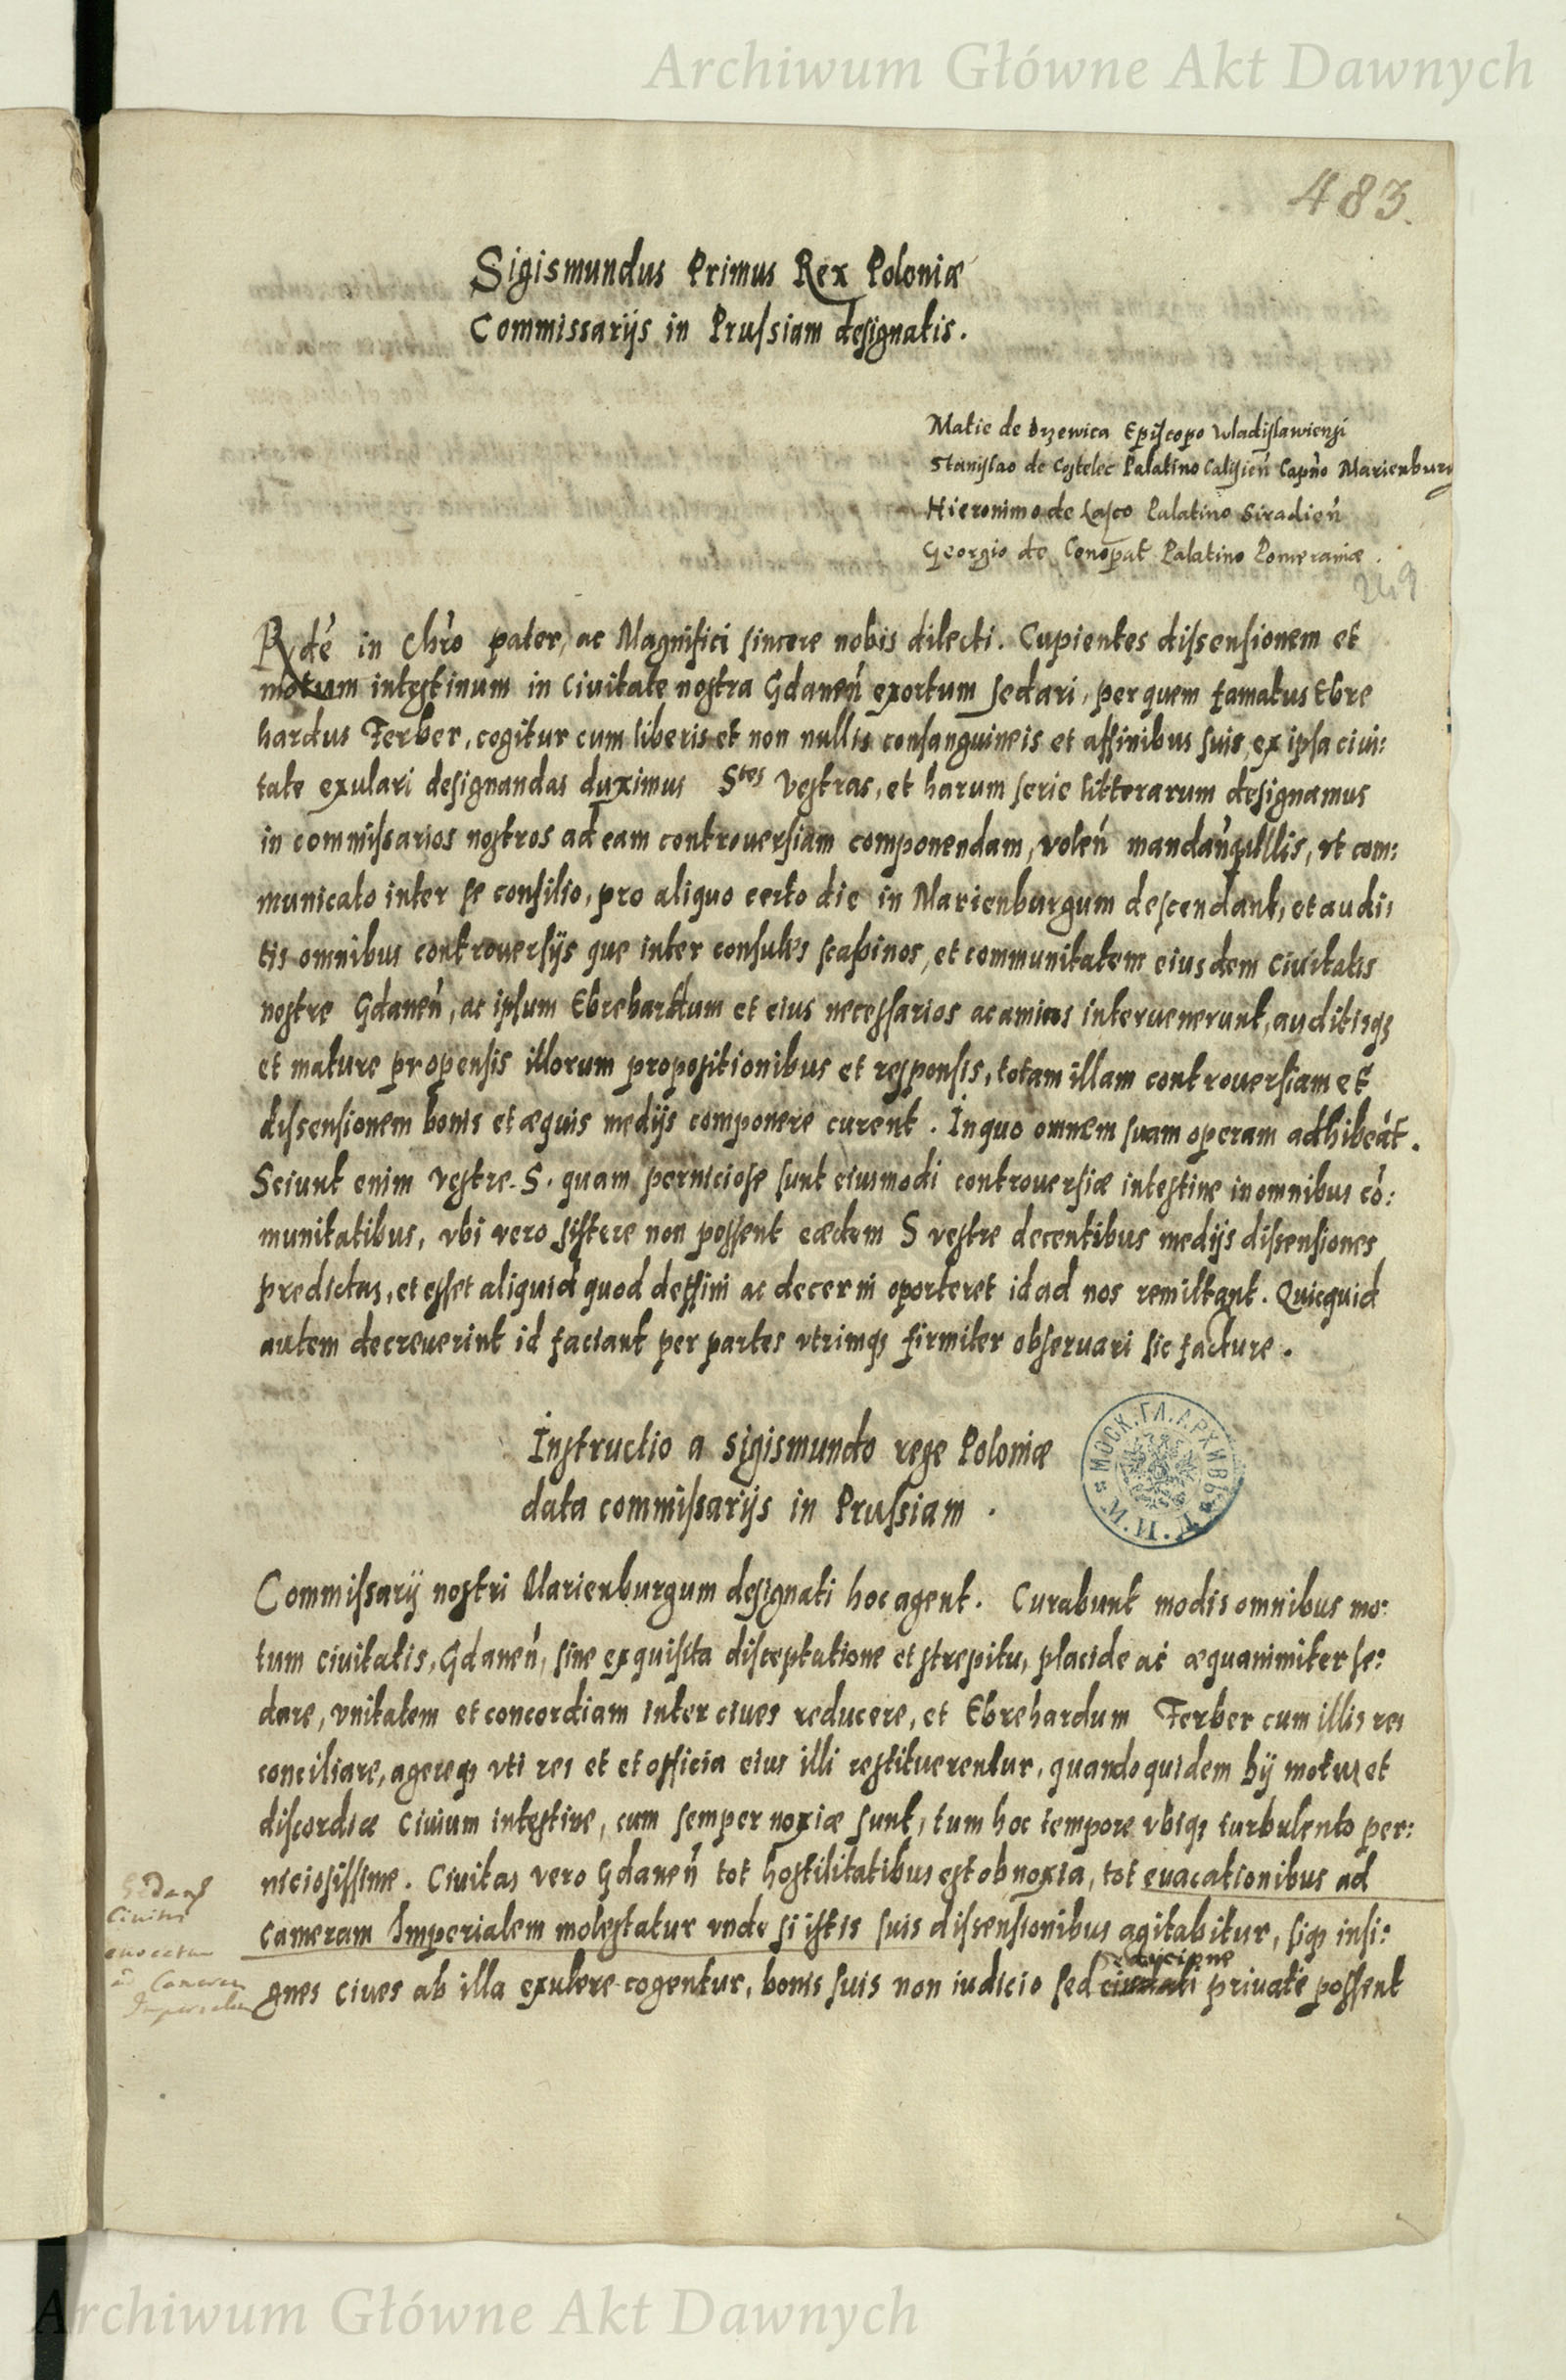 Archiwum Główne Akt Dawnych
483.
Sigismundus Primus Rex Poloniæ
Commissarijs in Prussiam designatis.
Matie de Drzewica Episcopo Wladislawiensi
Stanislao de Costelec Palatino Calisień Capńo Marienburg
Hieronimo de Lasco Palatino Siradień
Georgio de Cenopat Palatino Pomeraniæ.
249
Rdé in Chro pater, ac Magnifici sincere nobis dilecti. Cupientes dissensionem et
motum intestinum in Ciuitate nostra Gdaneń exortum sedari, per quem famatus Ebre
hardus Ferber, cogitur cum liberis et non nullis consanguineis et affinibus suis ex ipsa ciui:
tate exulari designandas duximus Stes Vestras, et harum serie litterarum designamus
in commissarios nostros ad eam controuersiam componendam, voleń mandań illis, vt com:
municato inter se consilio, pro aliquo certo die in Marienburgum descendant, et audi:
tis omnibus controuersijs que inter consules scabinos, et communitatem eiusdem Ciuitatis
nostre Gdaneń, ac ipsum Ebrehardum et eius necessarios ac amicos interuenerunt, auditisqȝ
et mature propensis illorum propositionibus et responsis, totam illam controuersiam et
dissensionem bonis et æquis medijs componere curent. In quo omnem suam operam adhibeāt.
Sciunt enim Vestre S. quam perniciose sunt eiusmodi controuersiæ intestine in omnibus cō:
munitatibus, vbi vero sistere non possent eædem S vestre decentibus medijs dissensiones
predictas, et esset aliquid quod deffini ac decerni oporteret id ad nos remittant. Quicquid
autem decreuerint id faciant per partes vtrimqȝ firmiter obseruari sic facture.
Instructio a Sigismundo rege Poloniæ
data commissarijs in Prussiam.
МОСК. ГЛ. АРХИВЪ
Commissarij nostri Marienburgum designati hoc agent. Curabunt modis omnibus mo:
tum ciuitatis, Gdaneń, sine exquisita disceptatione et strepitu, placide ac æquanimiter se:
dare, vnitatem et concordiam inter ciues reducere, et Ebrehardum Ferber cum illis re:
conciliare, agereqȝ vti res et et officia eius illi restituerentur, quandoquidem hij motus et
discordiæ Ciuium intestine, cum semper noxiæ sunt, tum hoc tempore vbiqȝ turbulento per:
niciosissime. Ciuitas vero Gdaneń tot hostilitatibus est obnoxia, tot euacationibus ad
cameram Imperialem molestatur vnde si istis suis dissensionibus agitabitur, siqȝ insi:
gnes Ciues ab illa exulere cogentur, bonis suis non iudicio sed priuate possent
Ciuitas
euocatur
ad Cameram
Imperialem
Archiwum Główne Akt Dawnych